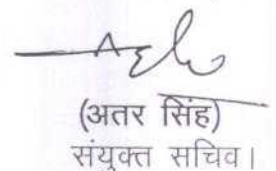 (अतर सिंह)
संयुक्त सचिव।